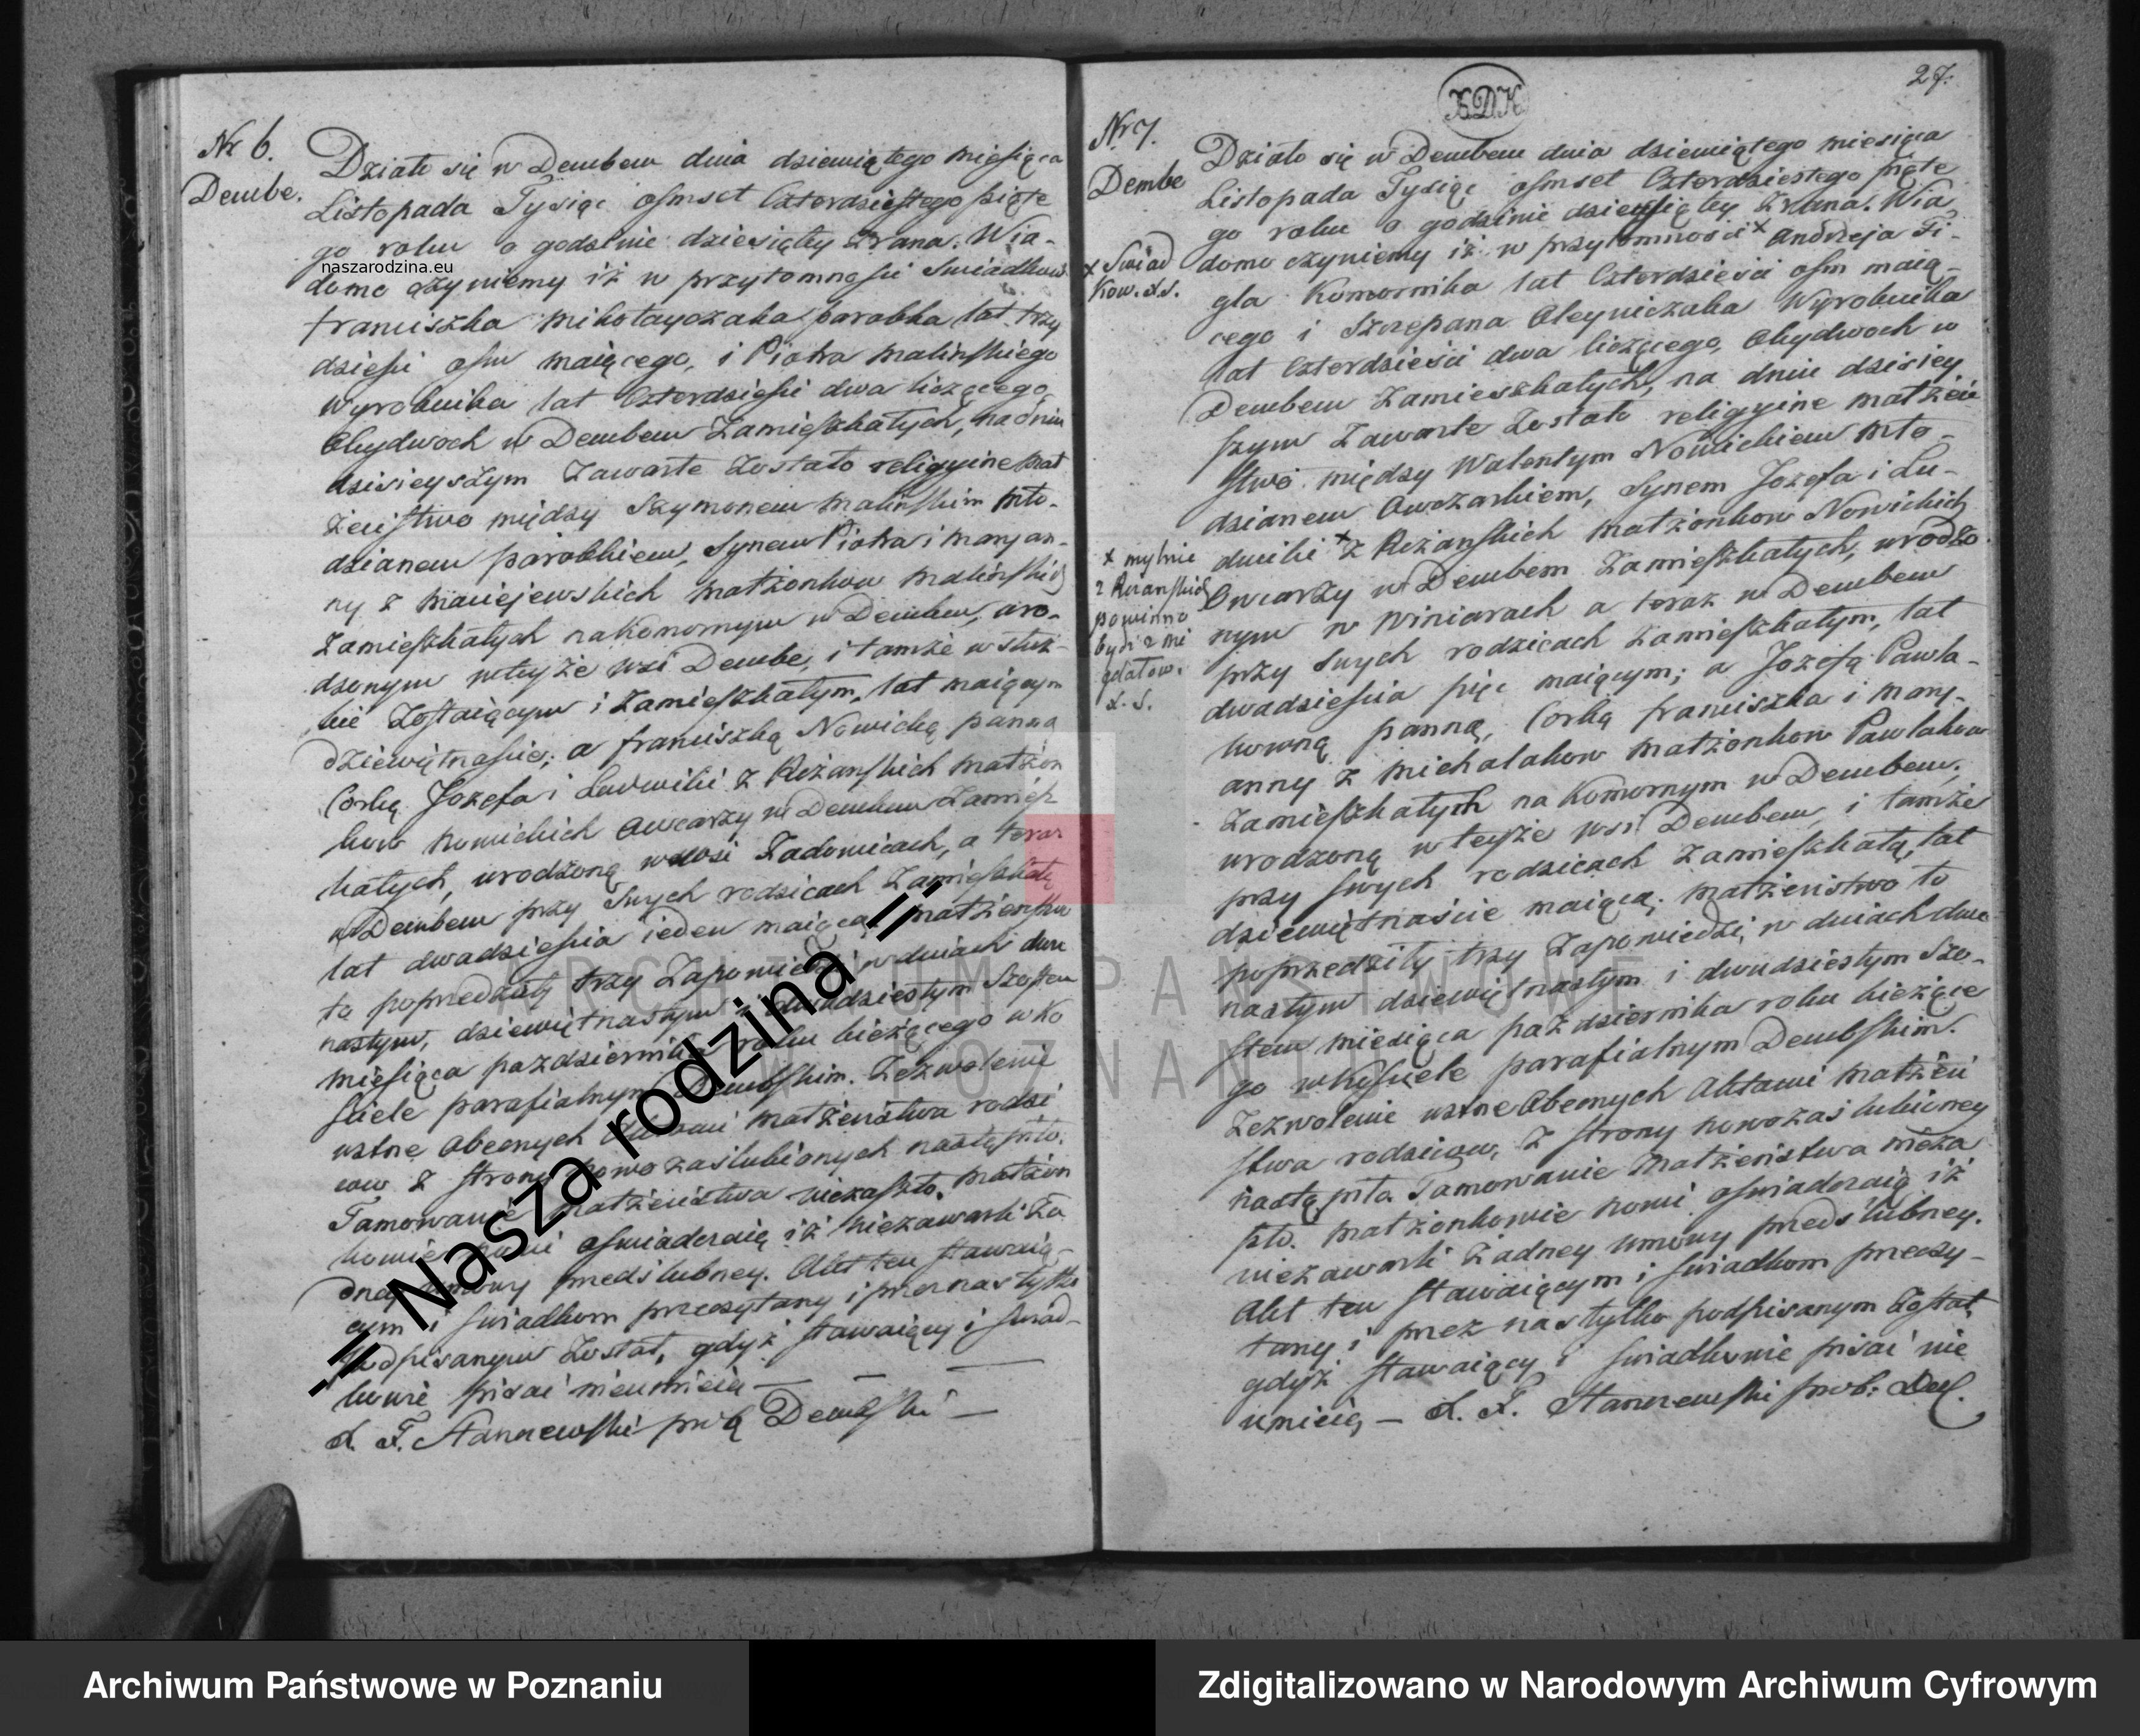 Nr 6.
Dembe.
Działo się w Dembem dnia dziewiątego miesiąca
Listopada Tysiąc osmset Czterdziestego piąte
go roku o godzinie dziesiątey zrana. Wia-
naszarodzina.eu
domo czyniemy iż w przytomnosci Swiadkow
Franciszka Mikołayczaka parobka lat trzy
dziesci osm maiącego, i Piotra Malinskiego
Wyrobnika lat Czterdziesci dwa liczącego
Obydwoch w Dembem Zamieszkałych, na dniu
dzisieyszym Zawarte Zostało religyine Mał
żeństwo między Szymonem Malinskim Mło-
dzianem parobkiem, Synem Piotra i Maryan-
ny z Maciejewskich Małżonkow Malinskich
Zamieszkałych na Komornym w Dembem, uro-
dzonym w teyże wsi Dembe, i tamże w służ-
bie Zostaiącym i Zamieszkałym, lat maiącym
Dziewiętnascie; a Franciszką Nowicką panną
Corką Jozefa i Ludwiki z Reżanskich Małżon
kow Nowickich Owcarzy w Dembem Zamiesz
kałych, urodzoną we wsi Zadowicach, a teraz
w Dembem przy Swych rodzicach Zamieszkałą
lat dwadziescia ieden maiącą, Małżenstwo
to poprzedziły trzy Zapowiedzi w dniach dwu
nastym, dziewiętnastym i dwudziestym Szostem
Miesiąca pazdziernika roku bieżącego w Ko
sciele parafialnym Dembskim. Zezwolenie
ustne Obecnych Aktowi Małżeństwa rodzi
cow z strony nowo zaślubionych nastąpiło.
Tamowanie Małżeństwa niezaszło. Małżon
kowie nowi oswiadczaią iż niezawarli Ża
dney umowy przedślubney. Akt ten stawaią-
cym i swiadkom przeczytany i przez nas tylko
podpisanym Został, gdyż stawaiący i swiad-
kowie pisać nieumieią —
X. F. Stanczewski prob Dembski —
27.
Nr 7.
Dembe
Działo się w Dembem dnia dziewiątego miesiąca
Listopada Tysiąc osmset Czterdziestego piąte
go roku o godzinie dziesiątey zrana. Wia
domo czyniemy iż w przytomności x Andrzeja Fi-
x Swiad
kow. X.S.
gla Komornika lat Czterdzieści osm maią-
cego i Szczepana Oleyniczaka Wyrobnika
lat Czterdzieści dwa liczącego, Obydwoch w
Dembem Zamieszkałych, na dniu dzisiey
szym Zawarte Zostało religyine Małżeń
stwo między Walentym Nowickiem Mło-
dzianem Owczarkiem, Synem Jozefa i Lu-
dwiki x z Reżanskich Małżonkow Nowickich
x mylnie
z Reżanskich
powinno
być z Mi
gdałow.
X. S.
Owcarzy w Dembem Zamieszkałych, urodzo
nym w Winiarach a teraz w Dembem
przy Swych rodzicach Zamieszkałym, lat
dwadziescia pięc maiącym; a Jozefą Pawla-
kowną panną, Corką Franciszka i Mary-
anny z Michalakow Małżonkow Pawlakow
Zamieszkałych na Komornym w Dembem,
urodzoną w teyże wsi Dembem i tamże
przy swych rodzicach Zamieszkałą, lat
dziewiętnaście maiącą; Małżeństwo to
poprzedziły trzy Zapowiedzi, w dniach dwu
nastym dziewiętnastym i dwudziestym Szo-
stem miesiąca pazdziernika roku bieżące
go w Kościele parafialnym Dembskim.
Zezwolenie ustne Obecnych Aktowi Małżeń
stwa rodzicow, z strony nowozaślubioney
nastąpiło. Tamowanie Małżeństwa nieza
szło. Małżonkowie nowi oswiadczaią iż
niezawarli żadney umowy przedślubney.
Akt ten stawaiącym i swiadkom przeczy-
tany i przez nas tylko podpisanym Został
gdyż stawaiący i swiadkowie pisać nie
umieią, — X. F. Stanczewski prob: Dem.
-= Nasza rodzina =-
ARCHIWUM PAŃSTWOWE
W POZNANIU
Archiwum Państwowe w Poznaniu
Zdigitalizowano w Narodowym Archiwum Cyfrowym